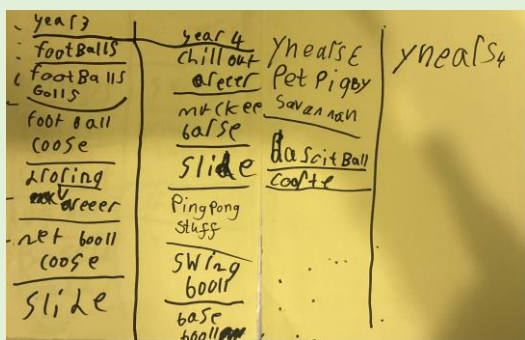 year 3
footBalls
footBalls
Golls
foot ball
coose
droring
areeer
net booll
coose
slide
year 4
chill out
areeer
muckee
barse
slide
Ping Pong
stuff
swing
booll
base
booll
ynears
Pet Pig By
savannah
bascitBall
coorte
ynears 4